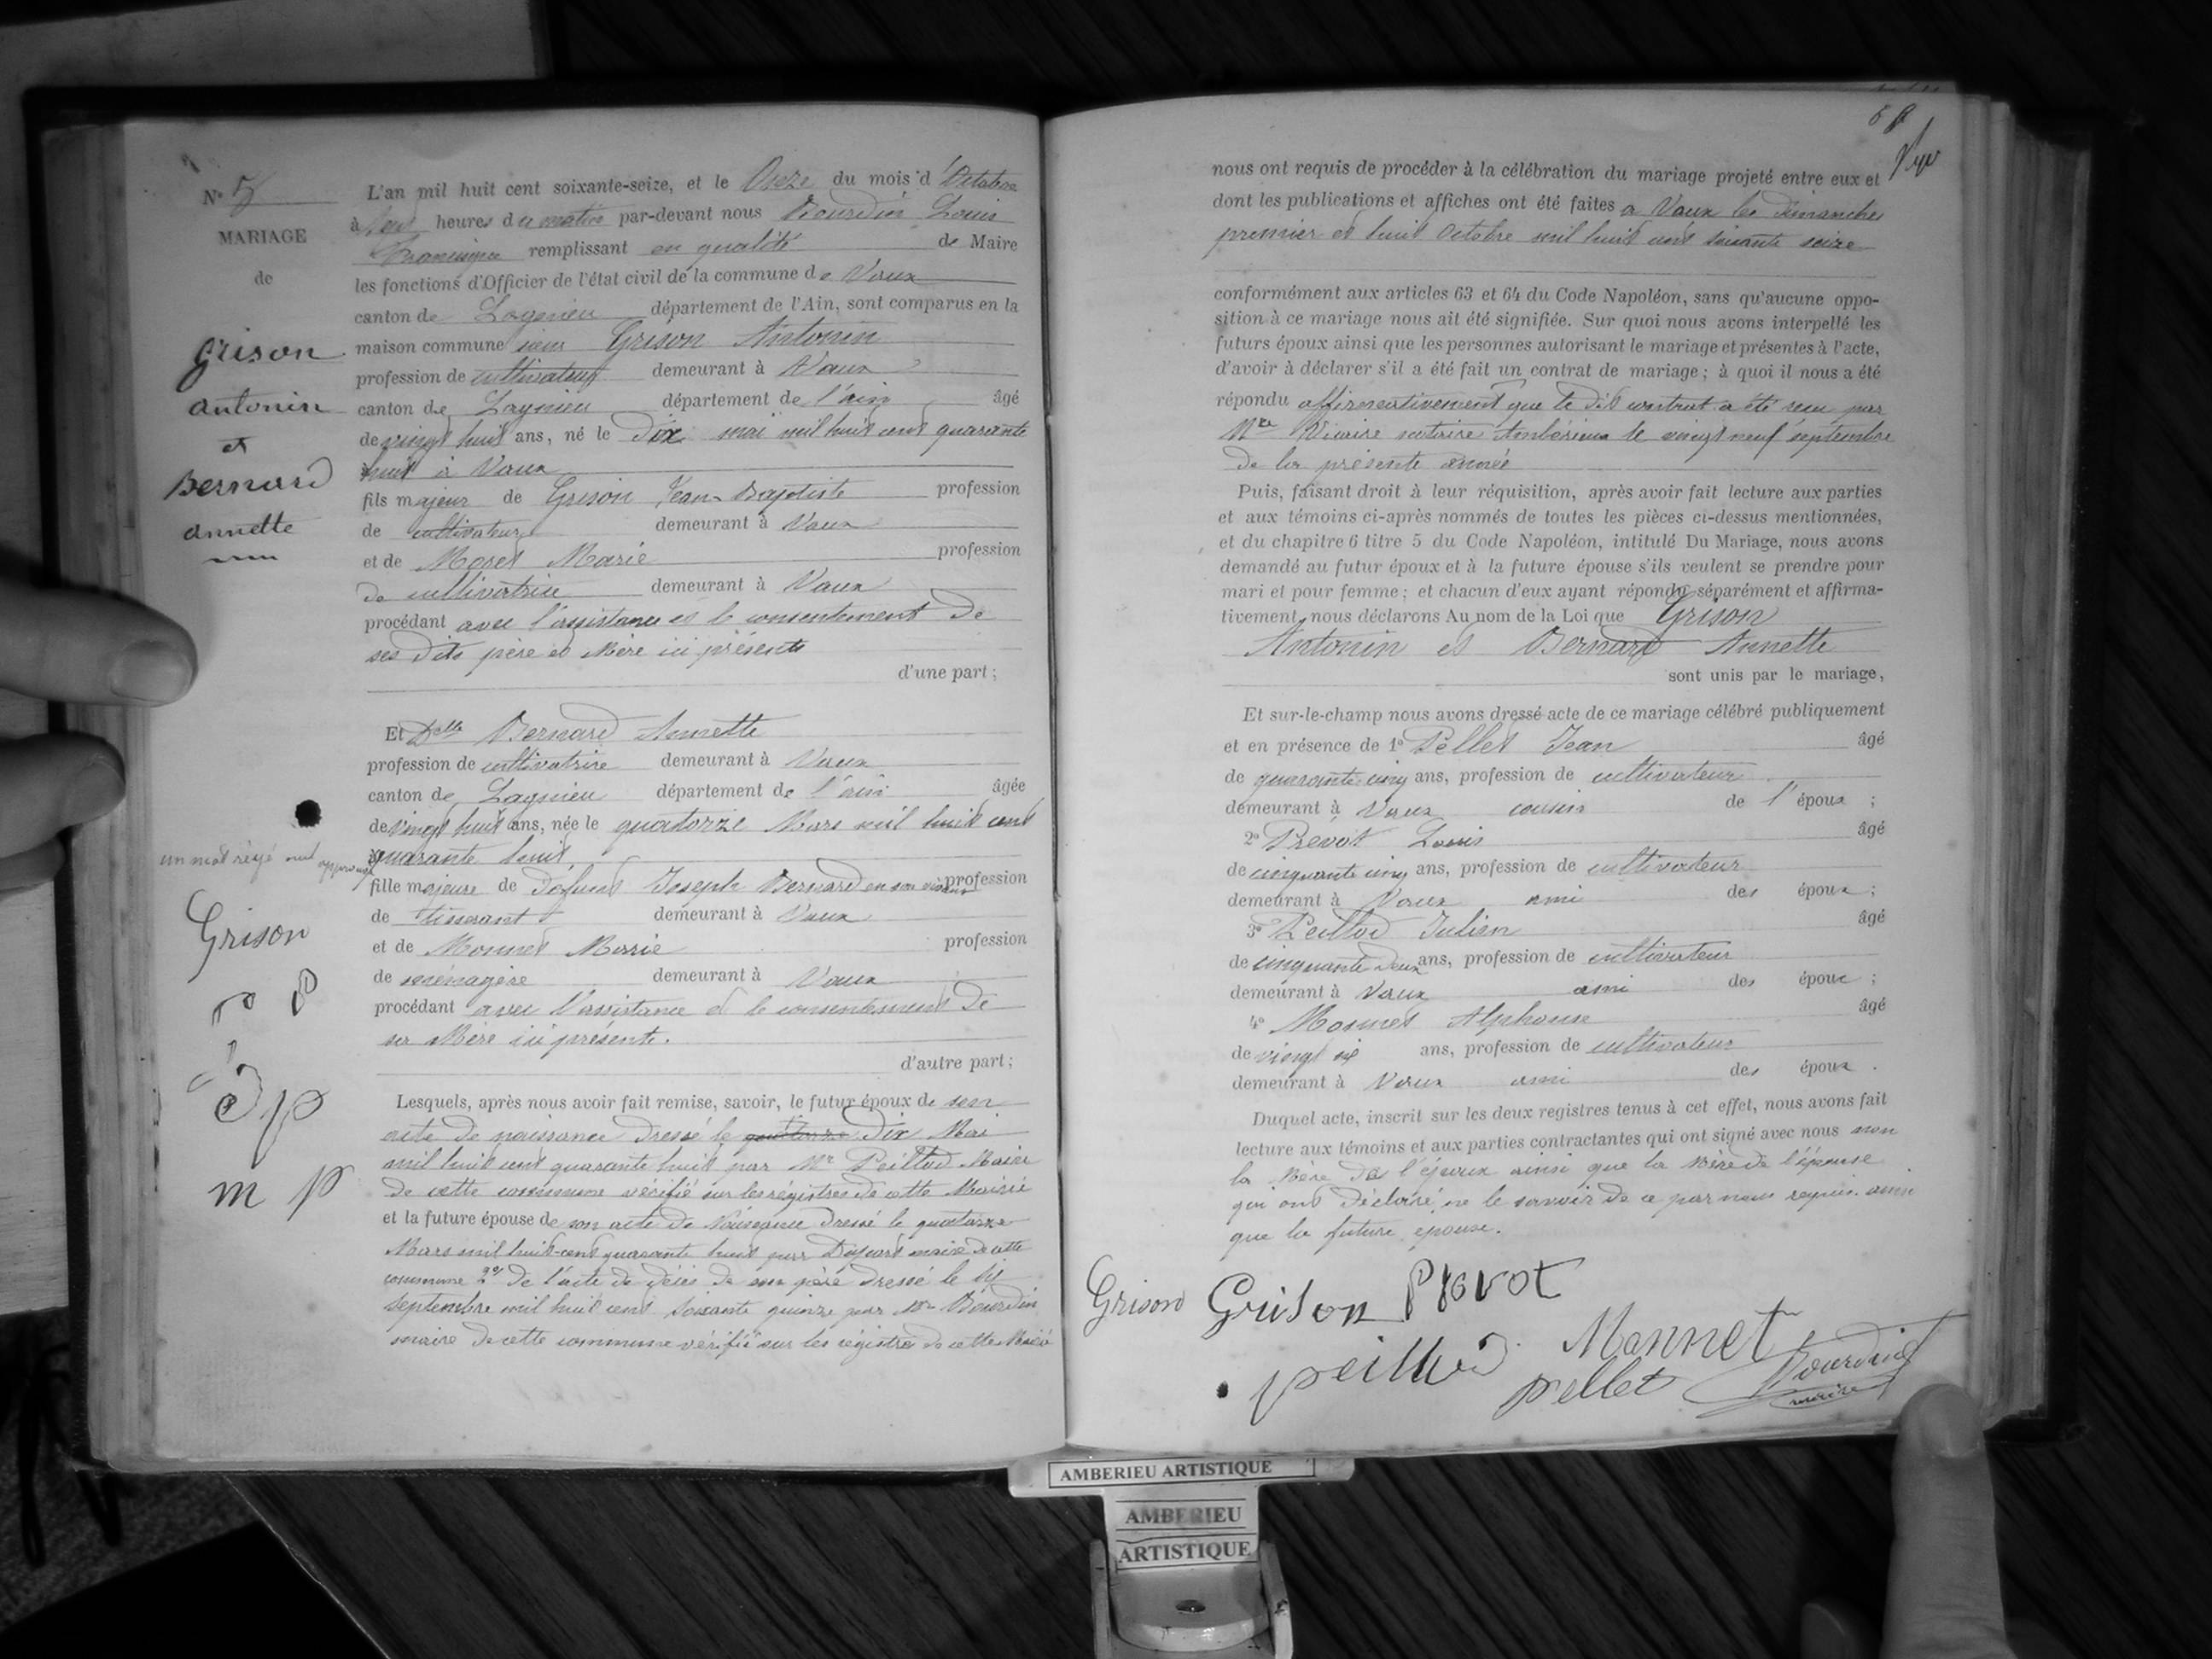 N° 5
MARIAGE
de
Grison
antonin
et
Bernard
annette
L'an mil huit cent soixante-seize, et le Onze du mois d'Octobre
à heures du matin par-devant nous Bourdin Louis
remplissant en qualité de Maire
les fonctions d'Officier de l'état civil de la commune de Vaux
canton de Lagnieu département de l'Ain, sont comparus en la
maison commune sieur Grison Antonin
profession de cultivateur demeurant à Vaux
canton de Lagnieu département de l'ain âgé
de vingt huit ans, né le dix mai mil huit cent quarante
huit à Vaux
fils majeur de Grison Jean-Baptiste profession
de cultivateur demeurant à Vaux
et de Morel Marie profession
de cultivatrice demeurant à Vaux
procédant avec l'assistance et le consentement de
ses dits père et Mère ici présents
d'une part ;
Et Dlle Bernard Annette
profession de cultivatrice demeurant à Vaux
canton de Lagnieu département de l'ain âgée
de vingt huit ans, née le quatorze Mars mil huit cent
quarante huit
un mot rayé nul approuvé
fille majeure de Défunt Joseph Bernard en son vivant profession
de tisserant demeurant à Vaux
et de Monnet Marie profession
de ménagère demeurant à Vaux
procédant avec l'assistance et le consentement de
sa Mère ici présente.
d'autre part ;
Grison
P
J p
m p
Lesquels, après nous avoir fait remise, savoir, le futur époux de son
acte de naissance dressé le quatorze dix Mai
mil huit cent quarante huit par Mr Peillod Maire
de cette commune vérifié sur les régistres de cette Mairie
et la future épouse de son acte de Naissance dressé le quatorze
Mars mil huit-cent quarante huit par maire de cette
commune de l'acte de décès de son père dressé le six
septembre mil huit cent soixante quinze par Mr Bourdin
maire de cette commune vérifié sur les régistres de cette Mairie
nous ont requis de procéder à la célébration du mariage projeté entre eux et
dont les publications et affiches ont été faites a Vaux les dimanches
premier et huit Octobre mil huit cent soixante seize
conformément aux articles 63 et 64 du Code Napoléon, sans qu'aucune oppo-
sition à ce mariage nous ait été signifiée. Sur quoi nous avons interpellé les
futurs époux ainsi que les personnes autorisant le mariage et présentes à l'acte,
d'avoir à déclarer s'il a été fait un contrat de mariage ; à quoi il nous a été
répondu affirmativement que le dit contrat a été reçu par
Mre Vicaire notaire Ambérieux le vingt neuf septembre
de la présente année
Puis, faisant droit à leur réquisition, après avoir fait lecture aux parties
et aux témoins ci-après nommés de toutes les pièces ci-dessus mentionnées,
et du chapitre 6 titre 5 du Code Napoléon, intitulé Du Mariage, nous avons
demandé au futur époux et à la future épouse s'ils veulent se prendre pour
mari et pour femme ; et chacun d'eux ayant répondu séparément et affirma-
tivement, nous déclarons Au nom de la Loi que Grison
Antonin et Bernard Annette
sont unis par le mariage,
Et sur-le-champ nous avons dressé acte de ce mariage célébré publiquement
et en présence de 1° Pellet Jean âgé
de quarante cinq ans, profession de cultivateur
demeurant à Vaux cousin de l'époux ;
2° Prevot Louis âgé
de cinquante cinq ans, profession de cultivateur
demeurant à Vaux ami des époux ;
3° Peillod Julien âgé
de cinquante deux ans, profession de cultivateur
demeurant à Vaux ami des époux ;
4° Monnet Alphonse âgé
de vingt six ans, profession de cultivateur
demeurant à Vaux ami des époux .
Duquel acte, inscrit sur les deux registres tenus à cet effet, nous avons fait
lecture aux témoins et aux parties contractantes qui ont signé avec nous non
la Mère de l'époux ainsi que la Mère de l'épouse
qui ont déclaré ne le savoir de ce par nous requis. ainsi
que la future épouse.
Grison Grison Prevot
peillod Monnet
pellet Bourdin
maire
AMBERIEU ARTISTIQUE
AMBERIEU
ARTISTIQUE